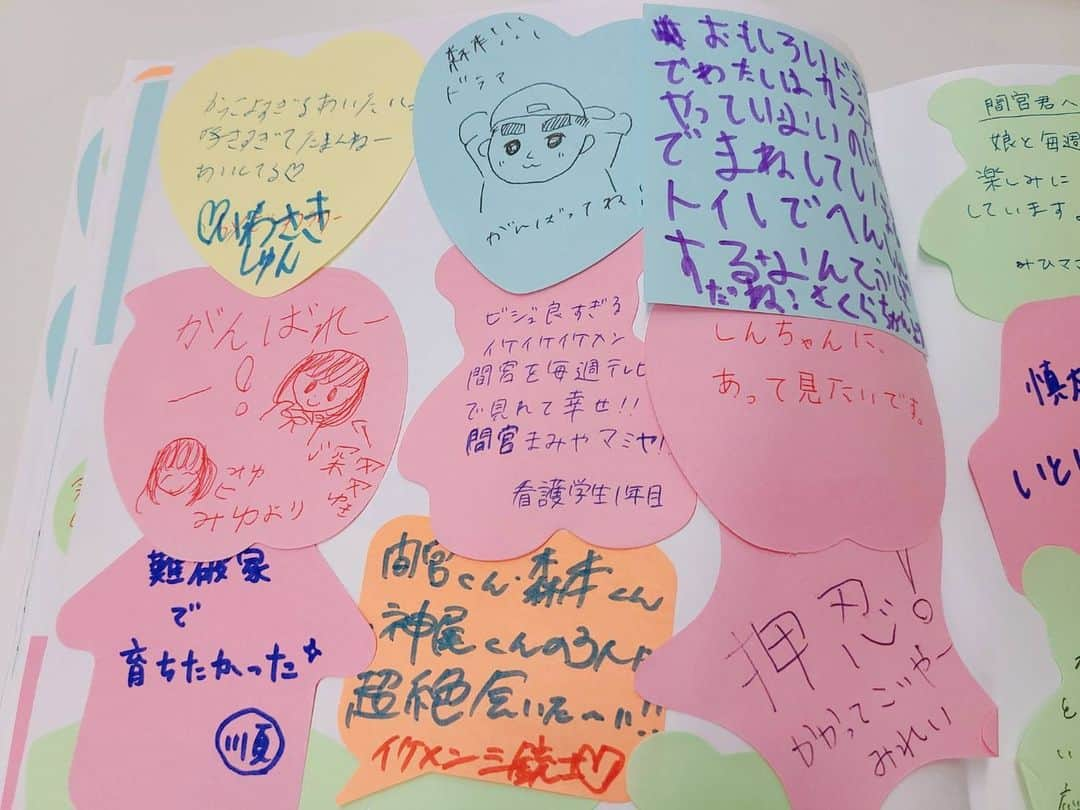 かっこよすぎるあいたい
好きすぎてたまんねー
あいしてる♡
しゅん
森本!!!
ドラマ
がんばってね!
おもしろいドラ
でわたしはカラテ
やっていないのに
でまねしてい
トイレでへんしん
するなんてふしぎ
だね!さくらちゃんより
間宮君へ
娘と毎週
楽しみに
しています。
がんばれー
ー!
みゆより
ビジュ良すぎる
イケイケイケメン
間宮を毎週テレビ
で見れて幸せ!!
間宮まみやマミヤ!
看護学生1年目
しんちゃんに、
あって見たいです。
慎太
いとし
難破家
で
育ちたかった☆
順
間宮くん・森本くん
神尾くんの3人に
超絶会いた〜い!!
イケメン三銃士♡
押忍!
かかってこいやー
みれい